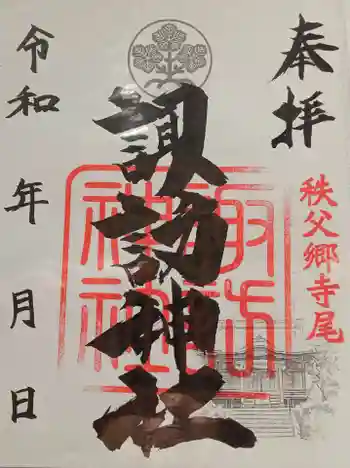 奉拝
秩父郷寺尾
諏訪神社
諏訪
神社
令和 年 月 日